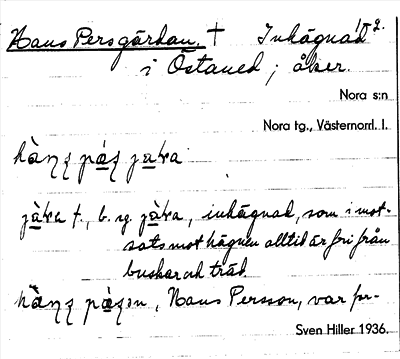 Hans Persgärdan, † Inhägnad 1 o 2.
i Östaned; åker.
Nora s:n
Nora tg., Västernorrl. l.
jàra f., b. sg. jàra, inhägnad, som i mot-
sats mot hägnen alltid är fri från
buskar och träd.
Hans Persson, var fr-
Sven Hiller 1936.